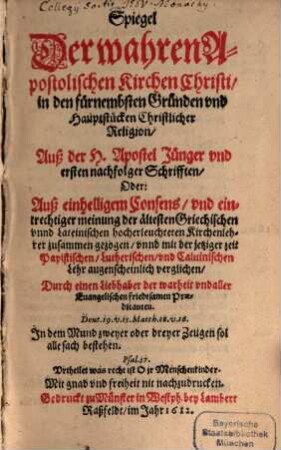 Collegij Societ. Jesu Monachij
Spiegel
Der wahren A-
postolischen Kirchen Christi/
in den fürnembsten Gründen vnd
Hauptstücken Christlicher
Religion/
Auß der H. Apostel Jünger vnd
ersten nachfolger Schrifften/
Oder:
Auß einhelligem Consens/ vnd ein-
trechtiger meinung der ältesten Griechischen
vnnd Lateinischen hocherleuchteten Kirchenleh-
rer zusammen gezogen/ vnnd mit der jetziger zeit
Papistischen/ Lutherischen/ vnd Caluinischen
Lehr augenscheinlich verglichen/
Durch einen liebhaber der warheit vnd aller
Euangelischen friedtsamen Præ-
dicanten.
Deut. 19. v. 15. Matth. 18. v. 16.
In dem Mund zweyer oder dreyer Zeugen sol
alle sach bestehen.
Psal. 57.
Vrtheilet was recht ist O jr Menschenkinder.
Mit gnad vnd freiheit nit nachzudrucken.
Gedruckt zu Münster in Westph. bey Lambert
Raßfeldt/ im Jahr 1612.
Bayerische
Staatsbibliothek
München